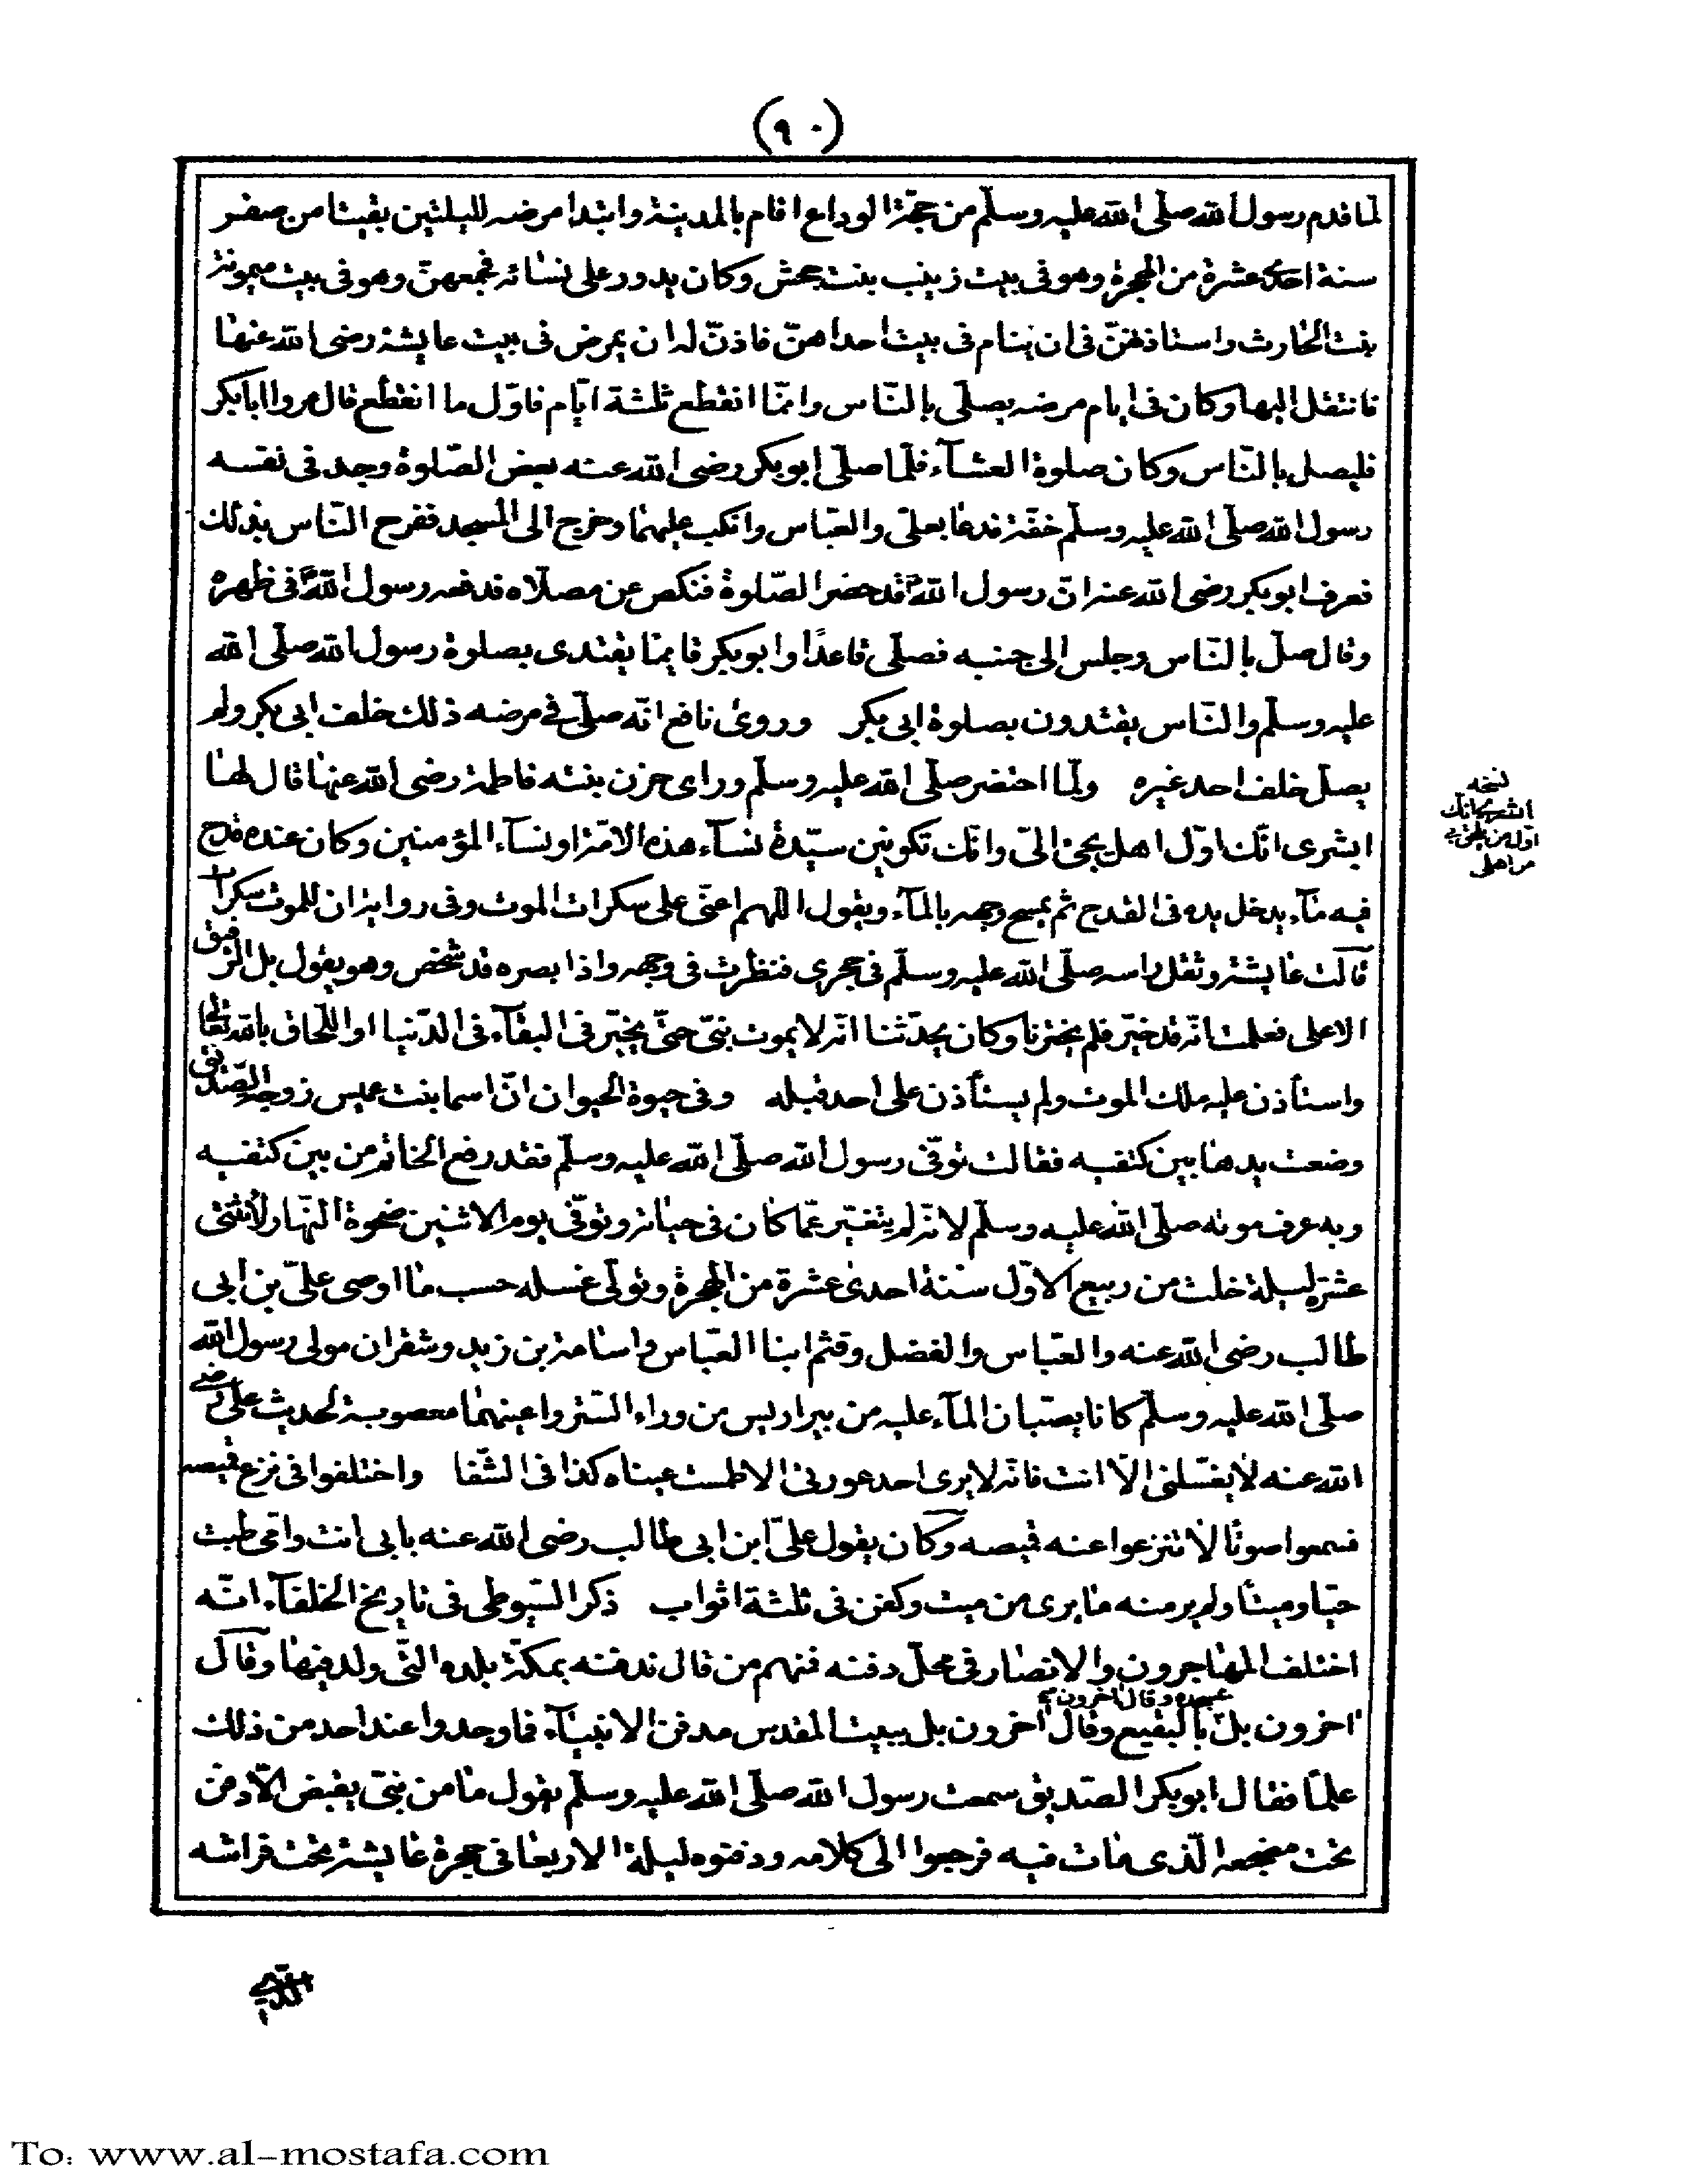 (٩٠)
لما قدم رسول الله صلّى الله عليه وسلّم من حجّة الوداع اقام بالمدينة وابتدا مرضه لليلتين بقيتا من صفر
سنة احدى عشرة من الهجرة وهو فى بيت زينب بنت جحش وكان يدور على نسائه فجمعهنّ وهو فى بيت ميمونة
بنت الحارث واستاذنهنّ فى ان ينام فى بيت احداهنّ فاذنّ له ان يمرض فى بيت عايشة رضى الله عنها
فانتقل اليها وكان فى ايام مرضه يصلّى بالنّاس وانمّا انقطع ثلثة ايّام فاوّل ما انقطع قال مروا ابابكر
فليصل بالنّاس وكان صلوة العشآء فلمّا صلّى ابوبكر رضى الله عنه بعض الصّلوة وجد فى نفسه
رسول الله صلّى الله عليه وسلّم خفّة فدعا بعلى والعبّاس وانكب عليهما وخرج الى المسجد ففرح النّاس بذلك
فعرف ابوبكر رضى الله عنه انّ رسول الله قد حضر الصّلوة فنكص عن مصلّاه فدفعه رسول الله فى ظهره
وقال صلّ بالنّاس وجلس الى جنبه فصلّى قاعدًا وابوبكر قايما يقتدى بصلوة رسول الله صلّى الله
عليه وسلّم والنّاس يقتدون بصلوة ابى بكر وروى نافع انّه صلّى فى مرضه ذلك خلف ابى بكر ولم
يصلّ خلف احد غيره ولمّا احتضر صلّى الله عليه وسلّم وراى حزن بنته فاطمة رضى الله عنها قال لها
ابشرى انّك اوّل اهل يجئ الىّ وانّك تكونين سيّدة نسآء هذه الامّة او نسآء المؤمنين وكان عنده قدح
فيه مآء يدخل يده فى القدح ثم يمسح وجهه بالمآء ويقول اللهم اعنّى على سكرات الموت وفى رواية ان للموت سكرات
قالت عايشة وثقل راسه صلّى الله عليه وسلّم فى حجرى فنظرت فى وجهه واذا بصره قد شخص وهو يقول بل الرّفيق
الاعلى فعلمت انّه قد خيّر فلم يخترنا وكان يحدّثنا انّه لا يموت نبىّ حتّى يخيّر فى البقآء فى الدّنيا او اللّحاق بالله تعالى
واستأذن عليه ملك الموت ولم يستأذن على احد قبله وفى حيوة الحيوان انّ اسما بنت عميس زوجة الصّديق
وضعت يدها بين كتفيه فقالت توفّى رسول الله صلّى الله عليه وسلّم فقد رفع الخاتم من بين كتفيه
وبه عرف موته صلّى الله عليه وسلّم لانّه لم يتغيّر عمّا كان فى حياته وتوفّى يوم الاثنين ضحوة النّهار لاثنتى
عشرة ليلة خلت من ربيع الاوّل سنة احدى عشرة من الهجرة وتولّى غسله حسب ما اوصى علىّ بن ابى
طالب رضى الله عنه والعبّاس والفضل وقثم ابنا العبّاس واسامة بن زيد وشقران مولى رسول الله
صلّى الله عليه وسلّم كانا يصبّان المآء عليه من بير اريس من وراء السّتر واعينهما معصوبة لحديث على رضى
الله عنه لا يغسّلنى الّا انت فانّه لا يرى احد عورتى الا طمست عيناه كذا فى الشّفا واختلفوا فى نزع قميصه
فسمعوا صوتًا لا تنزعوا عنه قميصه وكان يقول علىّ ابن ابى طالب رضى الله عنه بابى انت وامّى طبت
حيّا وميتًا ولم ير منه ما يرى من ميت وكفن فى ثلثة اثواب ذكر السّيوطى فى تاريخ الخلفآء انّه
اختلف المهاجرون والانصار فى محلّ دفنه فمنهم من قال ندفنه بمكّة بلده التّى ولد فيها وقال
عبجده وقال اخرون
اخرون بل بالبقيع وقال اخرون بل ببيت المقدس مدفن الانبيآء فما وجدوا عند احد من ذلك
علمًا فقال ابوبكر الصّديق سمعت رسول الله صلّى الله عليه وسلّم يقول ما من نبىّ يقبض الّا دفن
تحت مضجعه الّذى مات فيه فرجعوا الى كلامه ودفنوه ليلة الاربعا فى حجرة عايشة تحت فراشه
نسخه
انك
اوّل من يلحق بى
من اهلى
To: www.al-mostafa.com